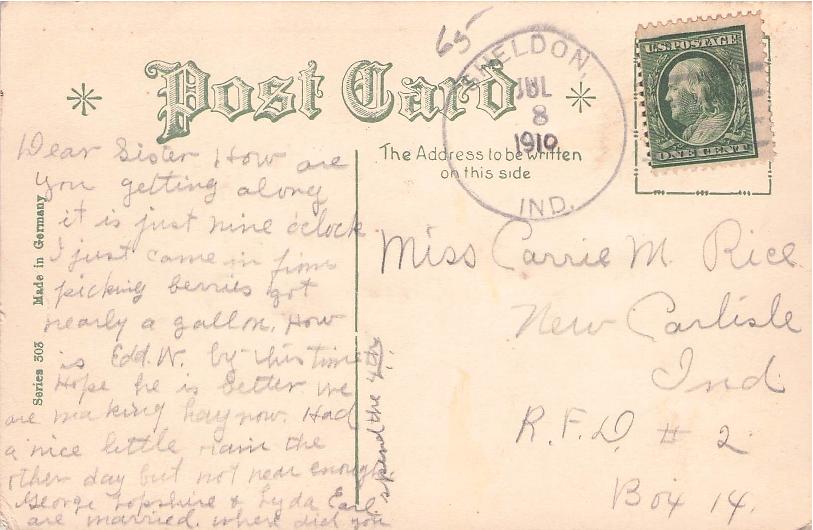 65
Post Card
SHELDON,
JUL
8
1910
IND.
U.S. POSTAGE
ONE CENT
The Address to be written
on this side
Made in Germany
Series 303
Dear Sister How are
you getting along
it is just nine o'clock
I just came in from
picking berries got
nearly a gallon. How
is Edd. N. by this time
Hope he is better we
are making hay now. Had
a nice little rain the
other day but not near enough.
George Lopshire & Lyda Earl
are married. where did you
spend the 4th.
Miss Carrie M. Rice
New Carlisle
Ind
R.F.D. # 2
Box 14.